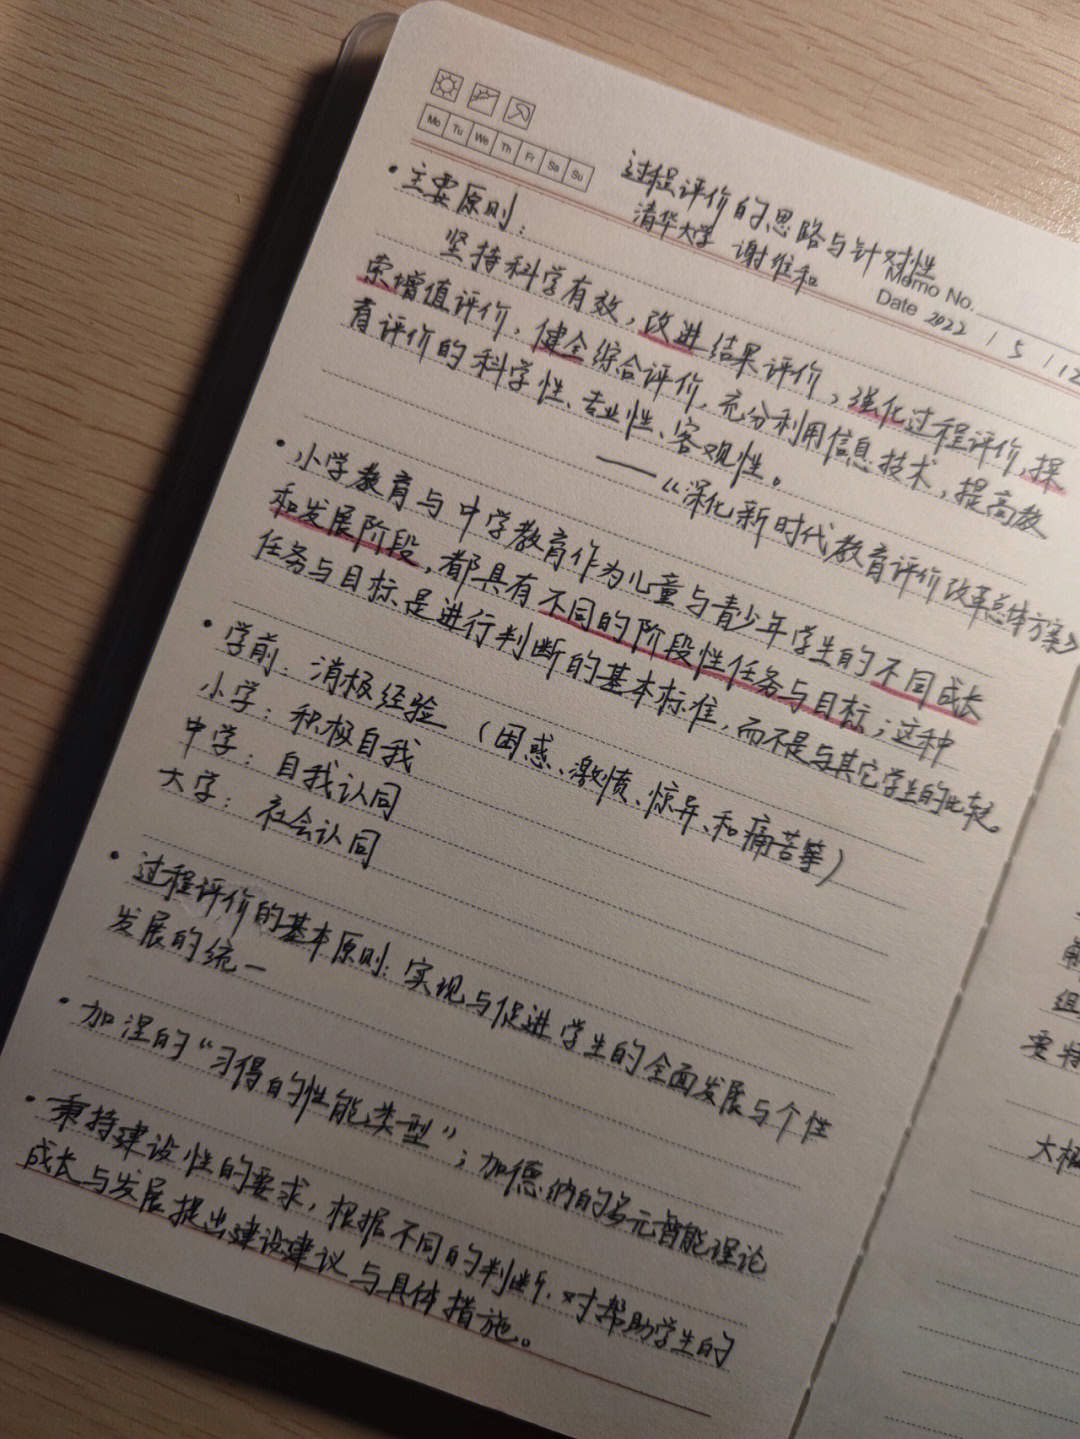 Mo Tu We Th Fr Sa Su
过程评价的思路与针对性
清华大学 谢维和
Memo No.
Date 2022 / 5 / 12
·主要原则：
坚持科学有效，改进结果评价，强化过程评价，探
索增值评价，健全综合评价，充分利用信息技术，提高教
育评价的科学性、专业性、客观性。
——《深化新时代教育评价改革总体方案》
·小学教育与中学教育作为儿童与青少年学生的不同成长
和发展阶段，都具有不同的阶段性任务与目标；这种
任务与目标是进行判断的基本标准，而不是与其它学生的比较。
·学前：消极经验（困惑、激愤、惊异、和痛苦等）
小学：积极自我
中学：自我认同
大学：社会认同
·过程评价的基本原则：实现与促进学生的全面发展与个性
发展的统一
·加涅的“习得的性能类型”；加德纳的多元智能理论
·秉持建设性的要求，根据不同的判断，对帮助学生的
成长与发展提出建设建议与具体措施。
组
要特
大概